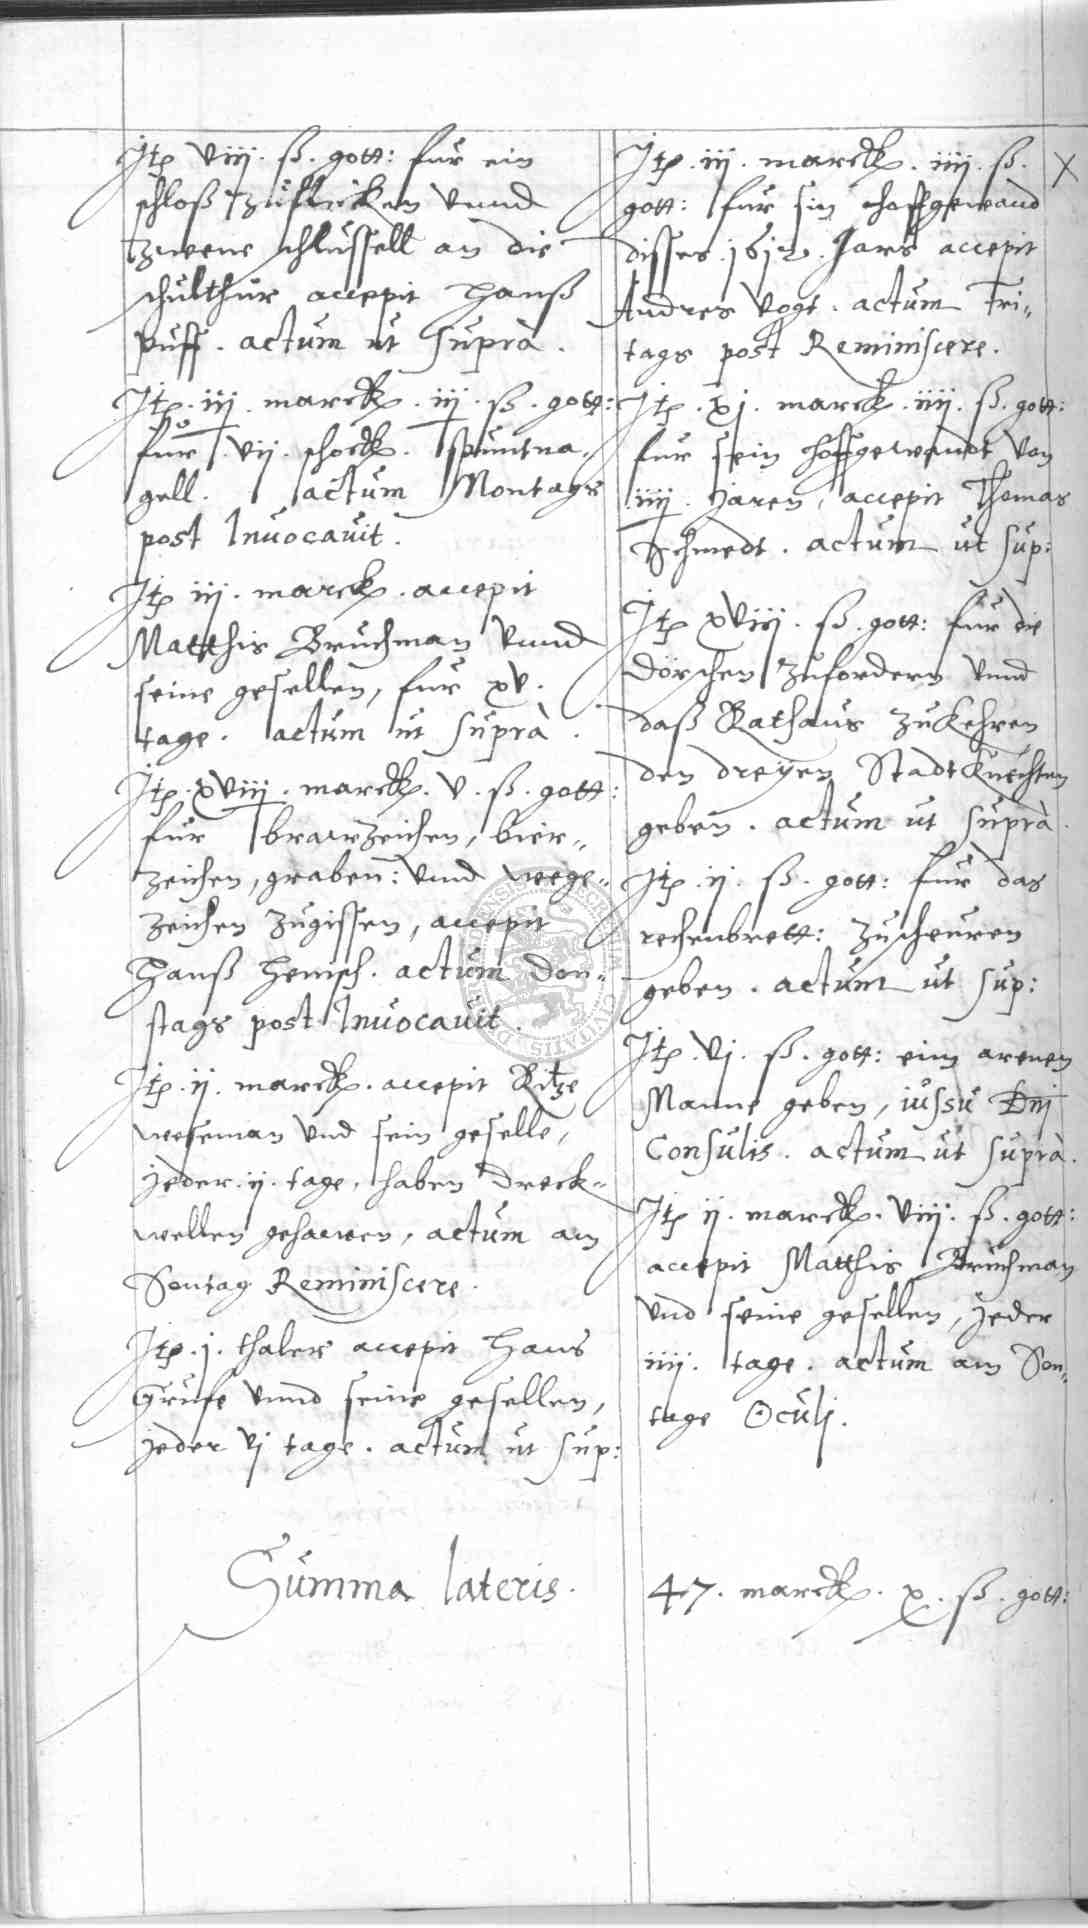 Itp viij. ß. gott: fur ein
schloß zuflicken vnnd
zwene schlussell an die
schulthur accepit Hanß
Puff. actum ut suprà.
Itp. iij. marck. iij. ß. gott:
fur. vij. schock. spuntna-
gell. actum Montags
post Inuocauit.
Itp iij. marck. accepit
Matthis Bruchman vnnd
seine gesellen, fur xv.
tage. actum ut suprà.
Itp. xviij. marck. v. ß. gott:
fur brawzeichen, bier-
zeichen, graben: vnnd wege-
zeichen zugissen, accepit
Hanß Hensch. actum Don-
stags post Inuocauit.
Itp. ij. marck. accepit Ritze
weseman vnd sein geselle,
jeder. ij. tage, haben dreck-
wellen gehawen, actum am
Sontag Reminiscere.
Itp. j. thaler accepit Hans
Grufe vnnd seine gesellen,
jeder vj tage. actum ut sup:
Itp. iij. marck. iiij. ß.
gott: fur sin hoffgewand
disses. 1612. Jars accepit
Andres Vogt. actum Fri-
tags post Reminiscere.
Itp. xj. marck. iiij. ß. gott:
fur sein hoffgewandt von
iiij. jaren, accepit Thomas
Schmedt. actum ut sup:
Itp xviij. ß. gott: fur die
Dörschen zufordern vnnd
daß Rathaus zukehren
den dreyen Stadtknechten
geben. actum ut suprà.
Itp. ij. ß. gott: fur das
rechenbrett: zuscheuren
geben. actum ut sup:
Itp. vj. ß. gott: eim armen
Manne geben, iussu Dnj
Consulis. actum ut suprà.
Itp ij. marck. viij. ß. gott:
accepit Matthis Bruchman
vnd seine gesellen, jeder
iiij. tage. actum am Son-
tage Oculj.
Summa lateris. 47. marck. x. ß. gott: